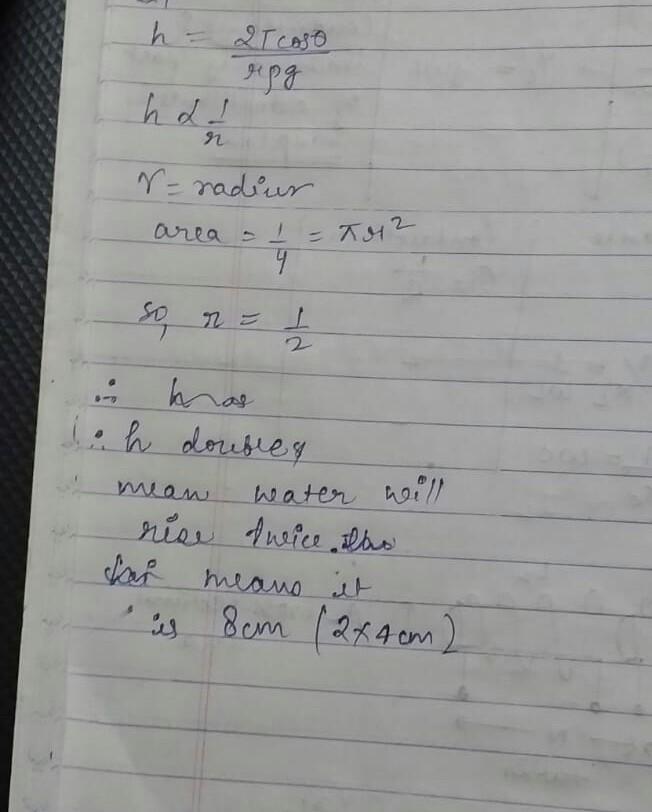 h = 2Tcosθ / rρg
h α 1/r
r = radius
area = 1/4 = πr²
so, r = 1/2
∴ h
∴ h doubles
mean water will
rise twice.
means it
is 8cm (2×4cm)